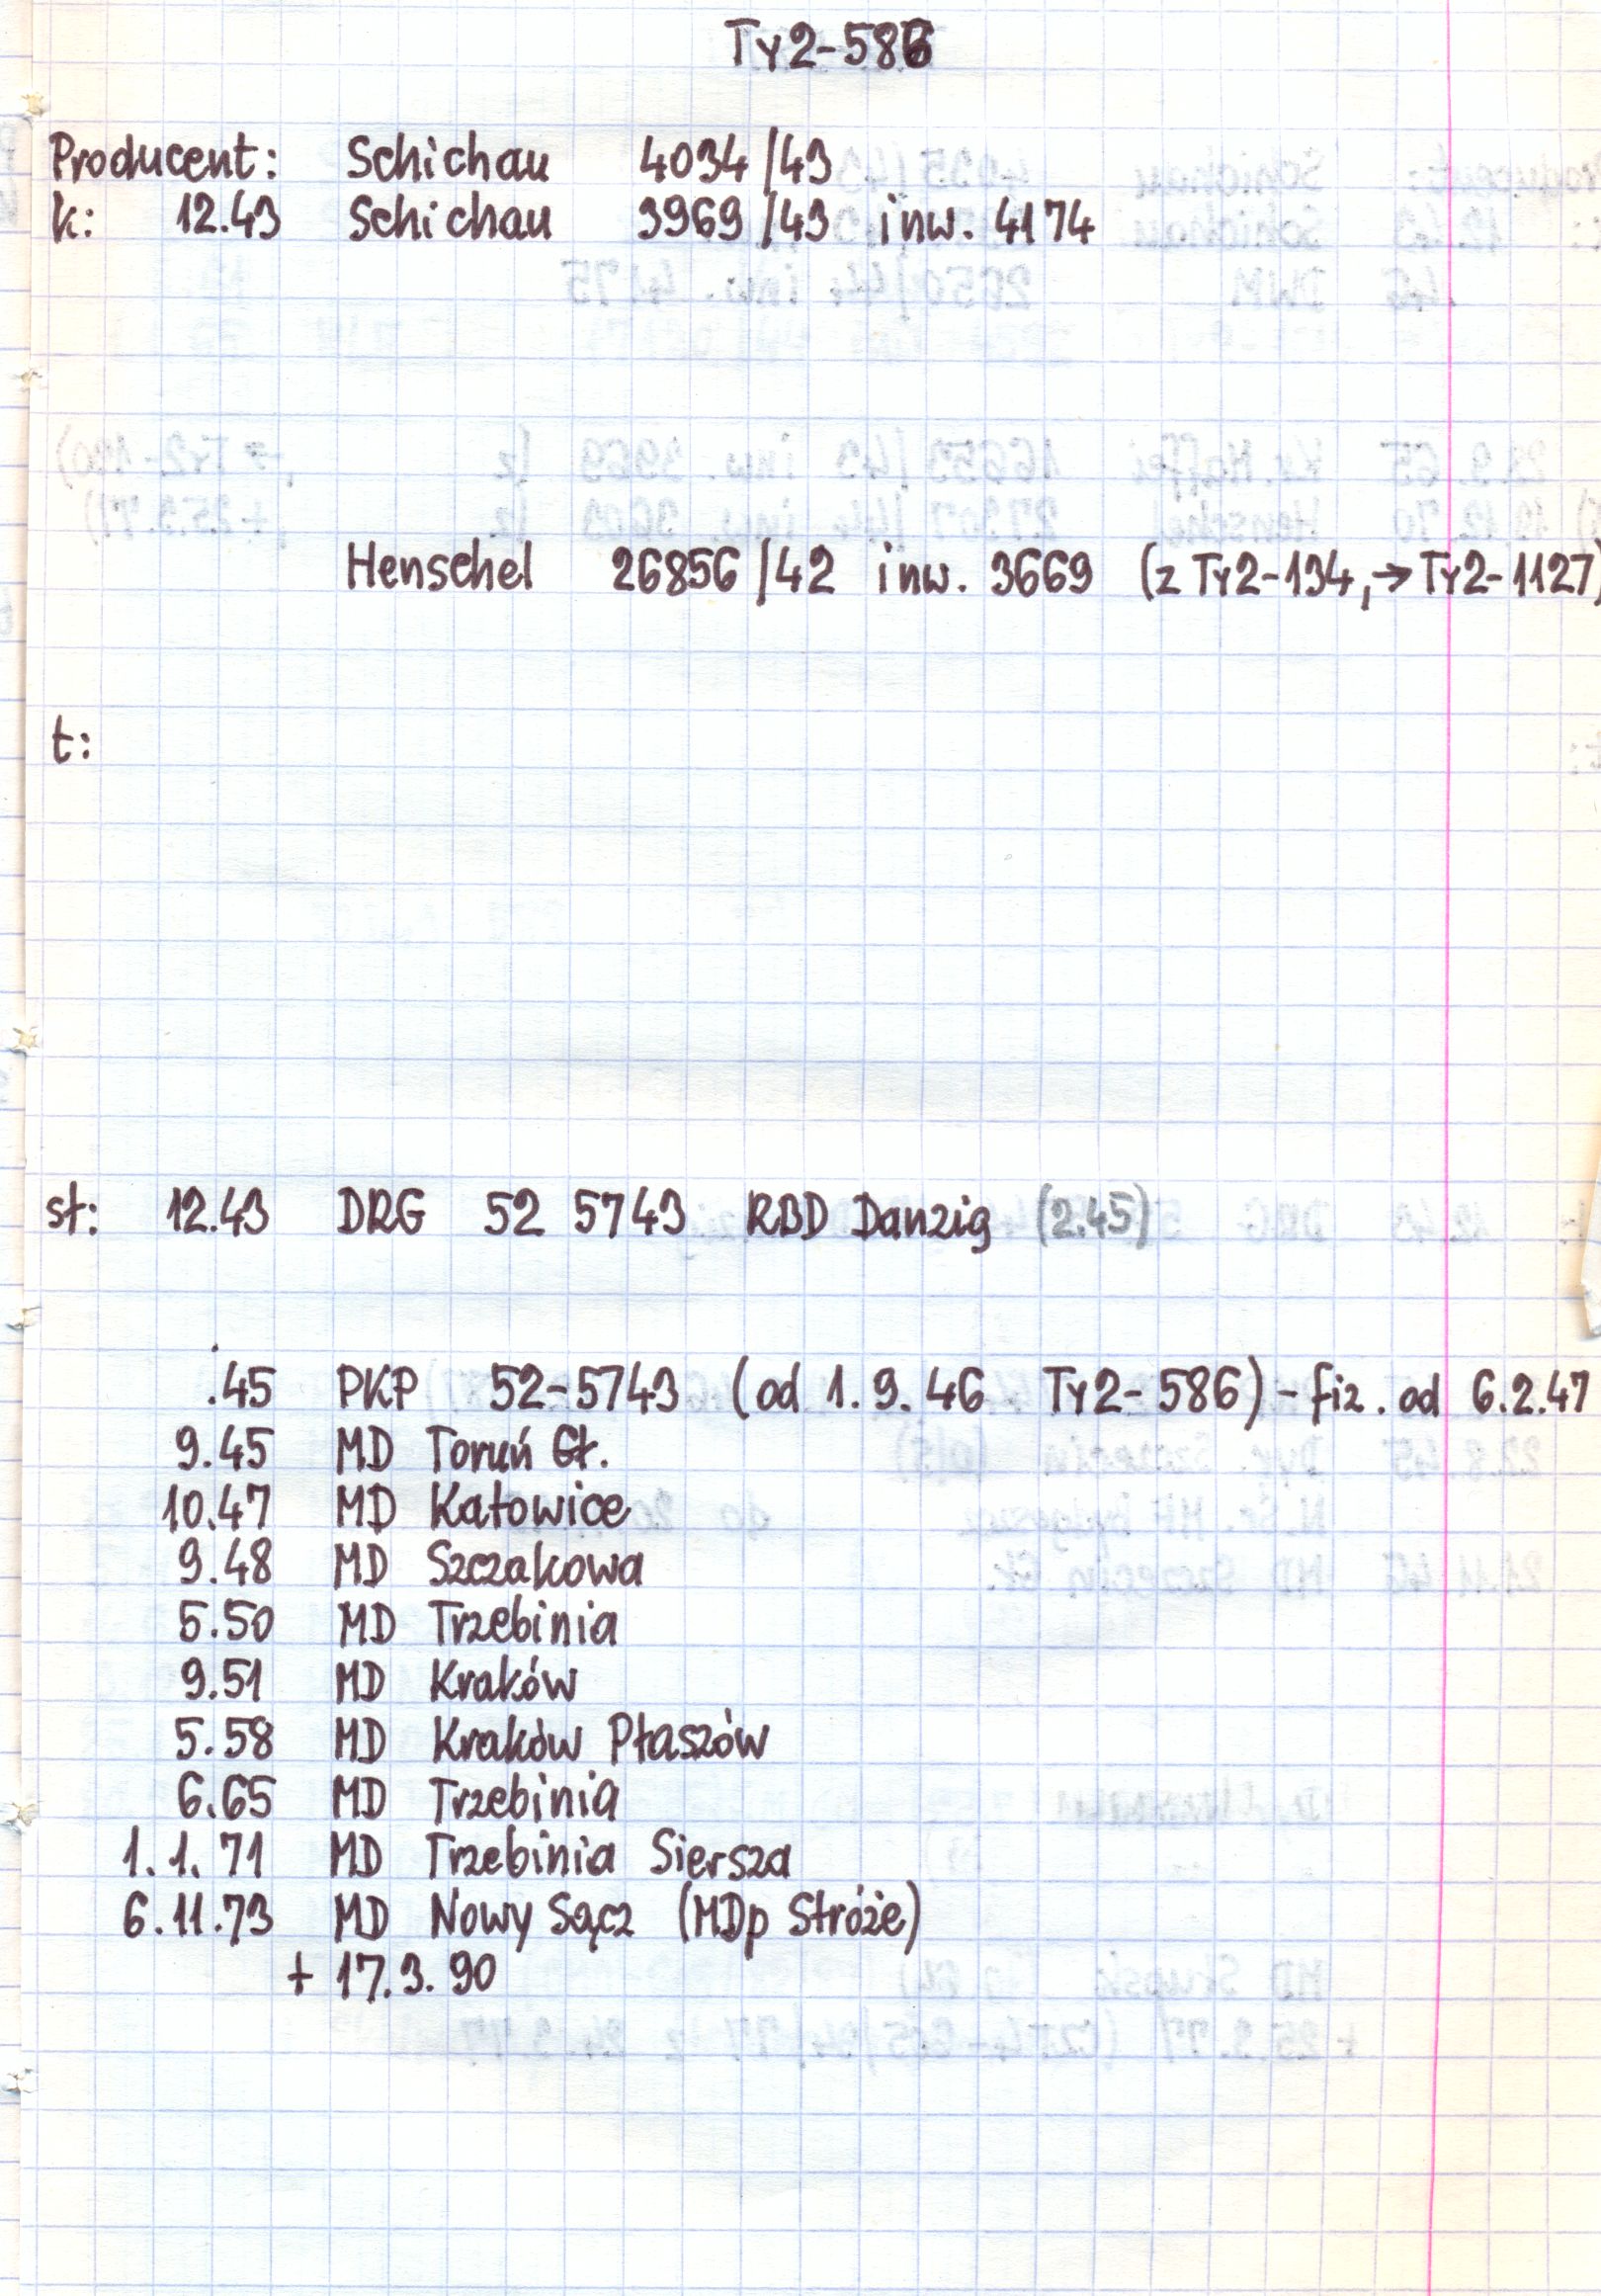 Ty2-586
Producent: Schichau 4034/43
k: 12.43 Schichau 3969/43 inw. 4174
Henschel 26856/42 inw. 3669 (z Ty2-134, → Ty2-1127)
t:
st: 12.43 DRG 52 5743 RBD Danzig (2.45)
.45 PKP 52-5743 (od 1.9.46 Ty2-586) - fiz. od 6.2.47
9.45 MD Toruń Gł.
10.47 MD Katowice
9.48 MD Szczakowa
5.50 MD Trzebinia
9.51 MD Kraków
5.58 MD Kraków Płaszów
6.65 MD Trzebinia
1.1.71 MD Trzebinia Siersza
6.11.73 MD Nowy Sącz (MDp Stróże)
+ 17.3.90